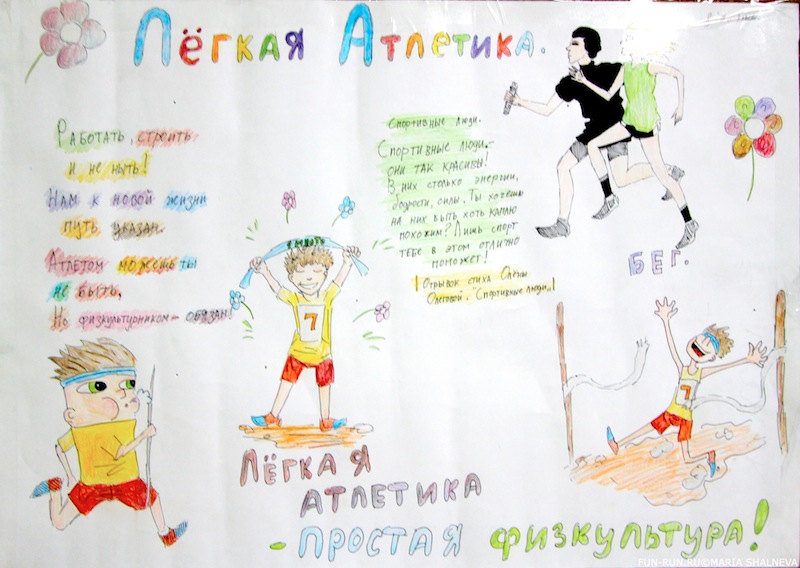 Лёгкая Атлетика.
Работать, строить
и не ныть!
Нам к новой жизни
путь указан.
Атлетом можешь ты
не быть,
Но физкультурником – обязан!
Спортивные люди.
Спортивные люди –
они так красивы!
В них столько энергии,
бодрости, силы. Ты хочешь
на них быть хоть каплю
похожим? Лишь спорт
тебе в этом отлично
поможет!
Отрывок стиха Олены
Олеговой. "Спортивные люди"
БЕГ.
7
7
ЛЁГКАЯ
АТЛЕТИКА
- ПРОСТАЯ ФИЗКУЛЬТУРА!
FUN-RUN.RU©MARIA SHALNEVA